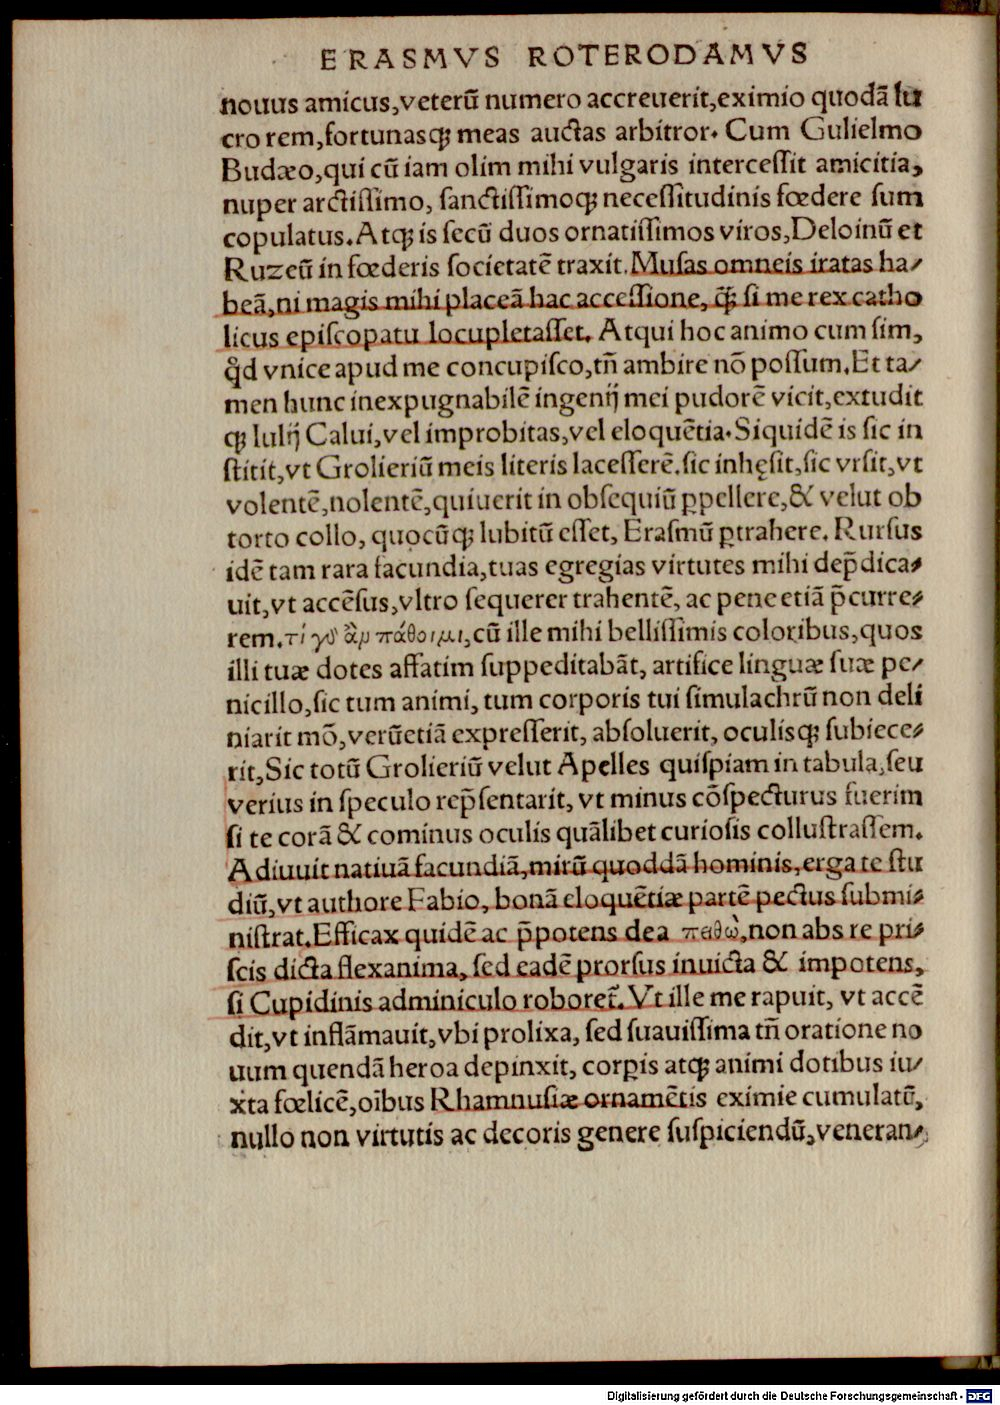 ERASMVS ROTERODAMVS
nouus amicus,veterū numero accreuerit,eximio quodā lu
cro rem,fortunasqꝫ meas auctas arbitror. Cum Gulielmo
Budæo,qui cū iam olim mihi vulgaris intercessit amicitia,
nuper arctissimo, sanctissimoqꝫ necessitudinis fœdere sum
copulatus.Atqꝫ is secū duos ornatissimos viros,Deloinū et
Ruzeū in fœderis societatē traxit.Musas omneis iratas ha/
beā,ni magis mihi placeā hac accessione, q̄ꝫ si me rex catho
licus episcopatu locupletasset. Atqui hoc animo cum sim,
qd̉ vnice apud me concupisco,tn̄ ambire nō possum.Et ta/
men hunc inexpugnabilē ingenij mei pudorē vicit,extudit
qꝫ Iulij Calui,vel improbitas,vel eloquētia.Siquidē is sic in
stitit,vt Grolieriū meis literis lacesserē.sic inhęsit,sic vrsit,vt
volentē,nolentē,quiuerit in obsequiū ꝓpellere,& velut ob
torto collo, quocūqꝫ lubitū esset, Erasmū ꝑtrahere. Rursus
idē tam rara facundia,tuas egregias virtutes mihi dep̄dica/
uit,vt accēsus,vltro sequerer trahentē, ac pene etiā p̄curre/
rem.τί γὸ ἂρ πάθοιμι,cū ille mihi bellissimis coloribus,quos
illi tuæ dotes affatim suppeditabāt, artifice linguæ suæ pe/
nicillo,sic tum animi, tum corporis tui simulachrū non deli
niarit mō,verūetiā expresserit, absoluerit, oculisqꝫ subiece/
rit,Sic totū Grolieriū velut Apelles quispiam in tabula,seu
verius in speculo rep̄sentarit, vt minus cōspecturus fuerim
si te corā & cominus oculis quālibet curiosis collustrassem.
Adiuuit natiuā facundiā,mirū quoddā hominis,erga te stu
diū,vt authore Fabio, bonā eloquētiæ partē pectus submi/
nistrat.Efficax quidē ac p̄potens dea πειθὼ,non abs re pri/
scis dicta flexanima, sed eadē prorsus inuicta & impotens,
si Cupidinis adminiculo roboret̃. Vt ille me rapuit, vt accē
dit,vt inflāmauit,vbi prolixa, sed suauissima tn̄ oratione no
uum quendā heroa depinxit, corꝑis atqꝫ animi dotibus iu/
xta fœlicē,oībus Rhamnusiæ ornamētis eximie cumulatū,
nullo non virtutis ac decoris genere suspiciendū,veneran/
Digitalisierung gefördert durch die Deutsche Forschungsgemeinschaft - DFG